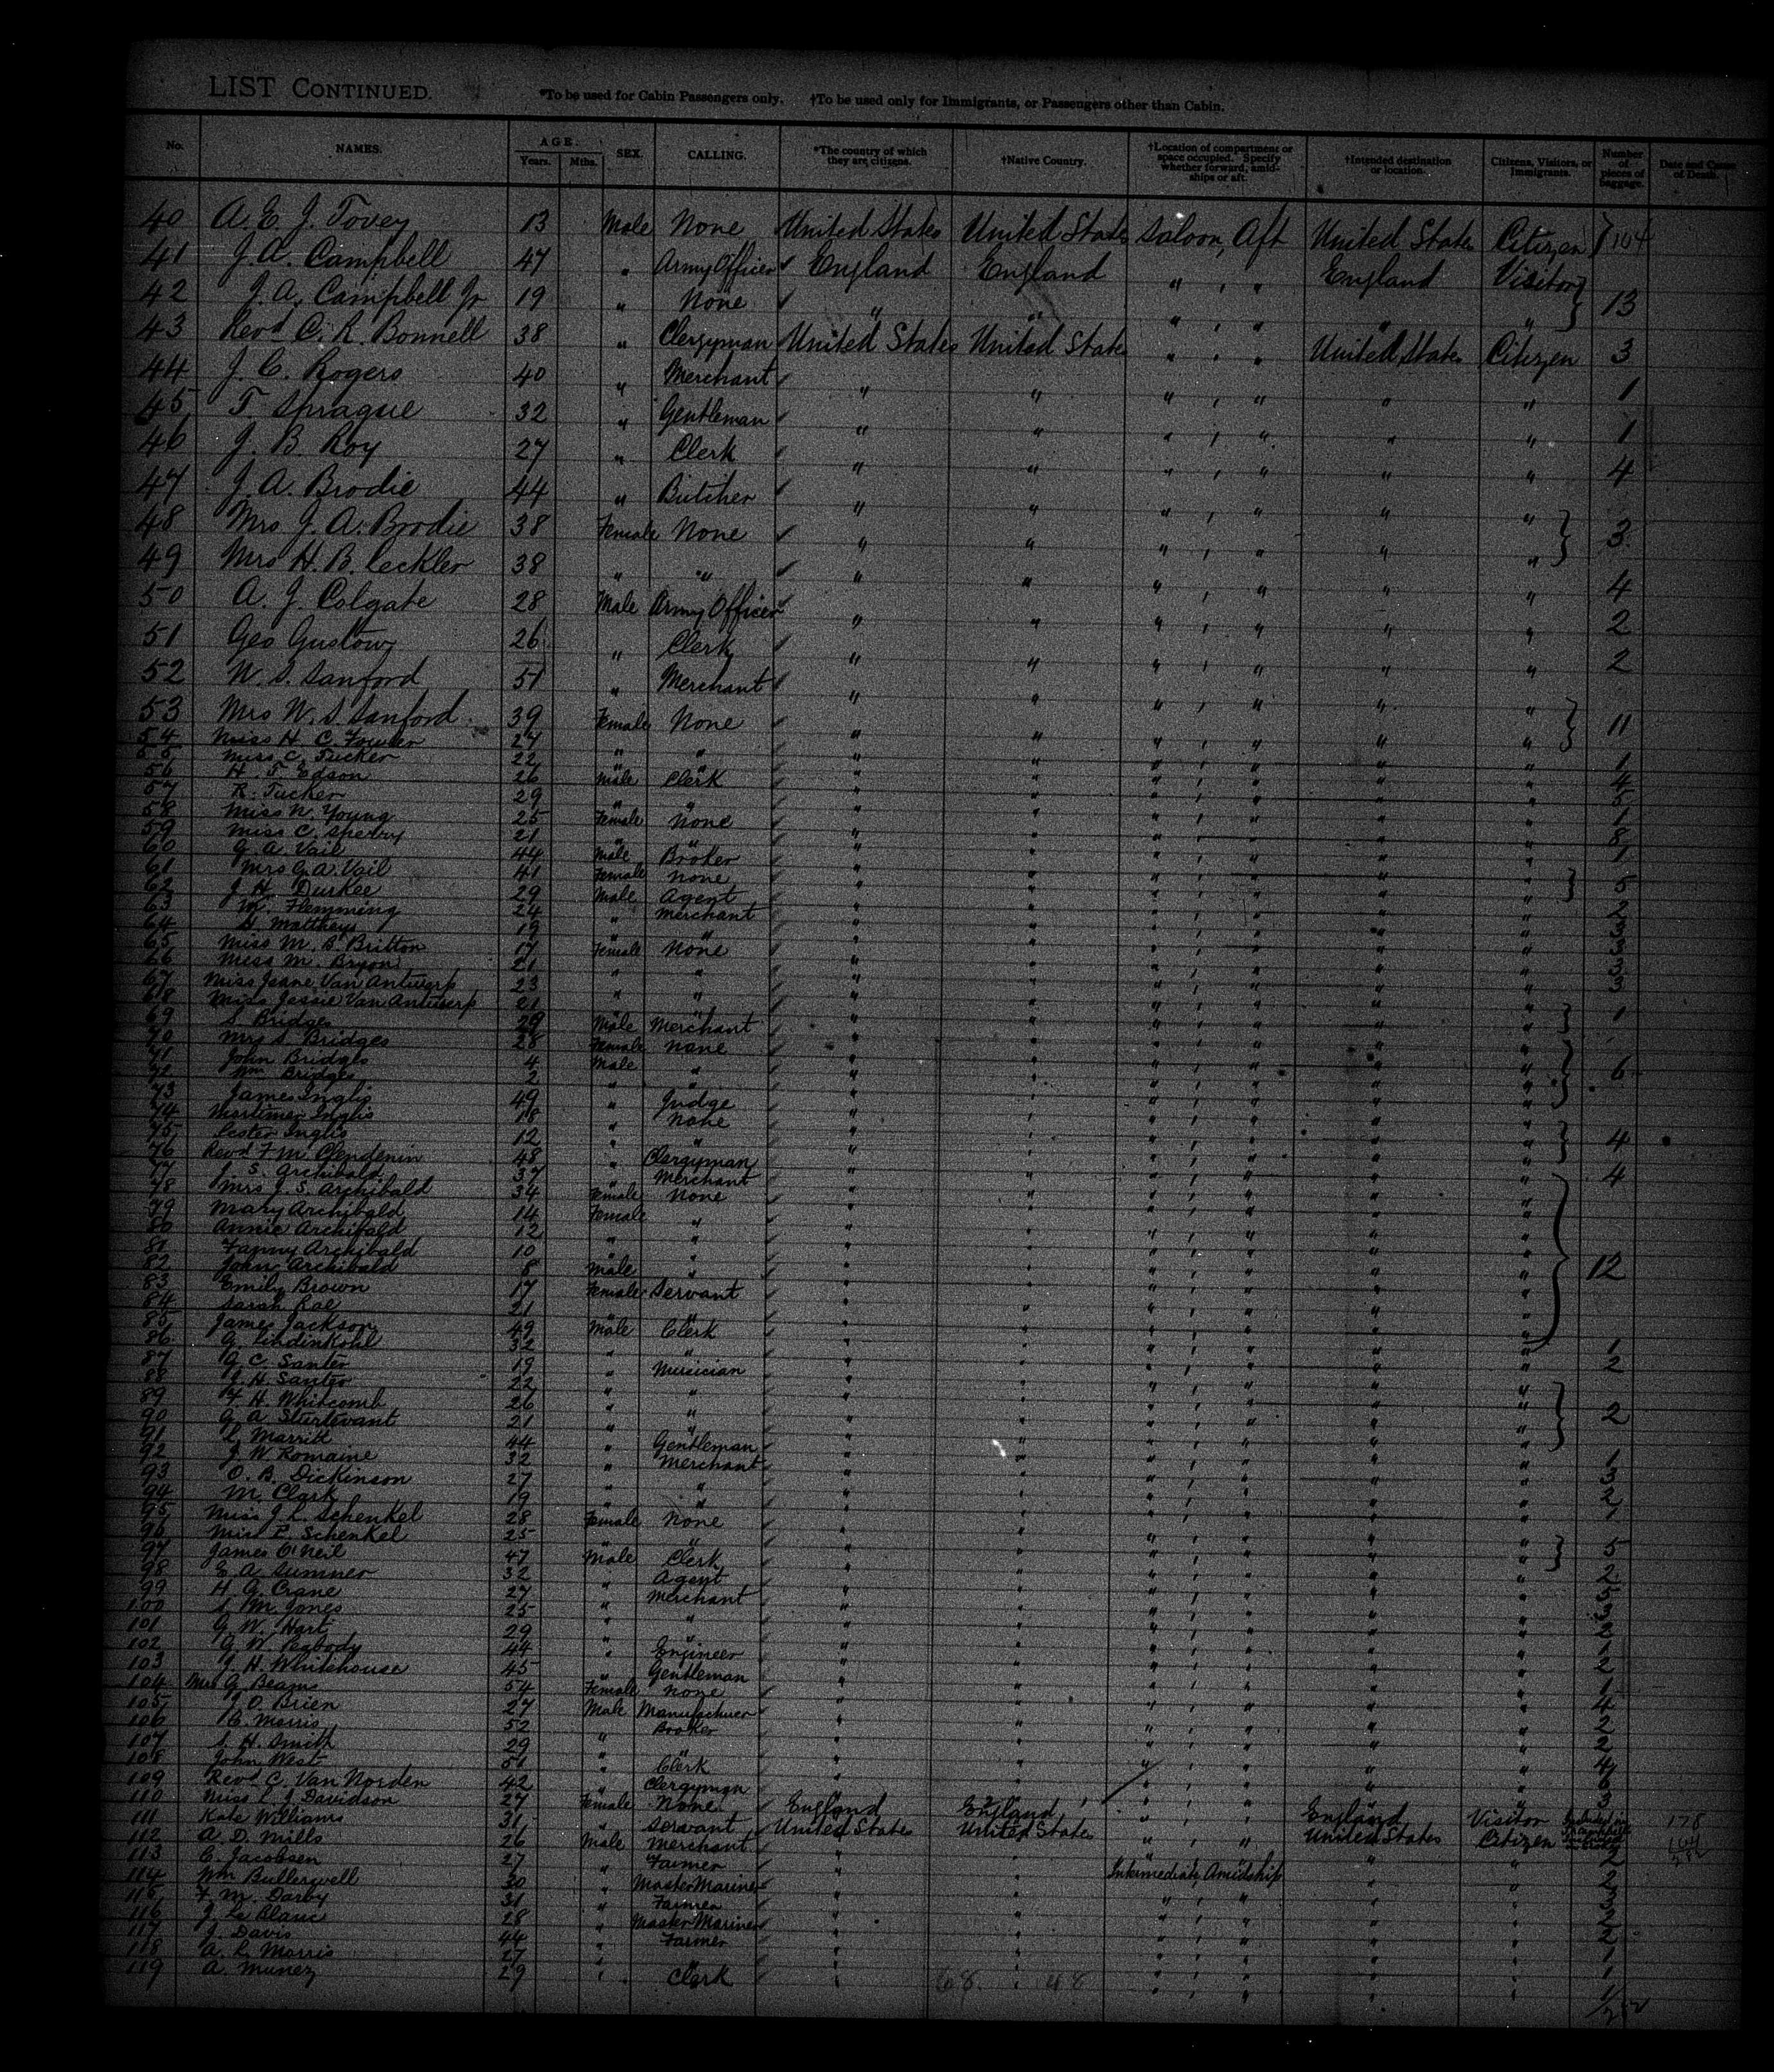 LIST CONTINUED.
*To be used for Cabin Passengers only. †To be used only for Immigrants, or Passengers other than Cabin.
No. NAMES. AGE. Years. Mths. SEX. CALLING. *The country of which they are citizens. †Native Country. †Location of compartment or space occupied. Specify whether forward, amidships or aft. †Intended destination or location. Citizens, Visitors, or Immigrants. Number of pieces of baggage. Date and Cause of Death.
40 A. E. J. Tovey 13 Male None United States United States Saloon, Aft United States Citizen 104
41 J. A. Campbell 47 " Army Officer England England " , " England Visitor
42 J. A. Campbell Jr 19 " None " " " , " " " 13
43 Revd C. R. Bonnell 38 " Clergyman United States United States " , " United States Citizen 3
44 J. C. Rogers 40 " Merchant " " " , " " " 1
45 T. Sprague 32 " Gentleman " " " , " " " 1
46 J. B. Roy 27 " Clerk " " " , " " " 4
47 J. A. Brodie 44 " Butcher " " " , " " "
48 Mrs J. A. Brodie 38 Female None " " " , " " " 3
49 Mrs H. B. Leckler 38 " " " " " , " " " 4
50 A. J. Colgate 28 Male Army Officer " " " , " " " 2
51 Geo Gustow 26 " Clerk " " " , " " " 2
52 W. S. Sanford 51 " Merchant " " " , " " "
53 Mrs W. S. Sanford 39 Female None " " " , " " " 11
54 Miss H. C. Fowler 27 " " " " " , " " " 1
55 Miss C. Tucker 22 " " " " " , " " " 4
56 H. T. Edson 26 Male Clerk " " " , " " " 5
57 R. Tucker 29 " " " " " , " " " 1
58 Miss N. Young 25 Female None " " " , " " " 8
59 Miss C. Sperry 21 " " " " " , " " " 1
60 G. A. Vail 44 Male Broker " " " , " " "
61 Mrs G. A. Vail 41 Female None " " " , " " " 5
62 J. H. Durkee 29 Male Agent " " " , " " " 2
63 W. Flemming 24 " Merchant " " " , " " "
64 S. Matthews 19 " " " " " , " " "
65 Miss M. B. Britton 17 Female None " " " , " " " 3
66 Miss M. Bryon 21 " " " " " , " " " 3
67 Miss Jeane Van Antwerp 23 " " " " " , " " "
68 Miss Jessie Van Antwerp 21 " " " " " , " " " 1
69 S. Bridges 29 Male Merchant " " " , " " "
70 Mrs S. Bridges 28 Female None " " " , " " "
71 John Bridges 4 Male " " " " , " " " 6
72 Wm Bridges 2 " " " " " , " " "
73 James Inglis 49 " Judge " " " , " " "
74 Mortimer Inglis 18 " None " " " , " " "
75 Lester Inglis 12 " " " " " , " " " 4
76 Revd F. M. Clendenin 48 " Clergyman " " " , " " " 4
77 J. S. Archibald 37 " Merchant " " " , " " "
78 Mrs J. S. Archibald 34 Female None " " " , " " "
79 Mary Archibald 14 Female " " " " , " " "
80 Annie Archibald 12 " " " " " , " " "
81 Fanny Archibald 10 " " " " " , " " "
82 John Archibald 8 Male " " " " , " " " 12
83 Emily Brown 17 Female Servant " " " , " " "
84 Sarah Rae 21 " " " " " , " " "
85 James Jackson 49 Male Clerk " " " , " " " 1
86 G. Lindinkohl 32 " " " " " , " " " 2
87 G. C. Santer 19 " Musician " " " , " " "
88 J. H. Santer 22 " " " " " , " " "
89 F. H. Whitcomb 26 " " " " " , " " " 2
90 G. A. Sturtevant 21 " " " " " , " " "
91 L. Marritt 44 " Gentleman " " " , " " " 1
92 J. W. Romaine 32 " Merchant " " " , " " " 3
93 O. B. Dickinson 27 " " " " " , " " " 2
94 M. Clark 19 " " " " " , " " " 1
95 Miss J. L. Schenkel 28 Female None " " " , " " "
96 Miss P. Schenkel 25 " " " " " , " " " 5
97 James O'Neil 47 Male Clerk " " " , " " " 2
98 E. A. Sumner 32 " Agent " " " , " " "
99 H. G. Crane 27 " Merchant " " " , " " "
100 S. M. Jones 25 " " " " " , " " "
101 G. W. Hart 29 " " " " " , " " "
102 G. W. Peabody 44 " Engineer " " " , " " " 2
103 J. H. Whitehouse 45 " Gentleman " " " , " " " 1
104 Mrs G. Beams 54 Female None " " " , " " " 4
105 J. O. Brien 27 Male Manufacturer " " " , " " " 2
106 C. Morris 52 " Broker " " " , " " " 2
107 S. H. Smith 29 " " " " " , " " " 4
108 John West 51 " Clerk " " " , " " " 6
109 Revd C. Van Norden 42 " Clergyman " " " , " " " 3
110 Miss L. J. Davidson 27 Female None England England " , " England Visitor 178
111 Kate Williams 31 " Servant United States United States " , " United States Citizen 104
112 A. D. Mills 26 Male Merchant " " " , " " " 2
113 C. Jacobsen 27 " Farmer " " Intermediate, Amidship " " 2
114 Wm Bullerwell 30 " Master Mariner " " " , " " " 3
115 F. M. Darby 31 " Farmer " " " , " " " 2
116 J. Le Blanc 28 " Master Mariner " " " , " " " 2
117 J. Davis 44 " Farmer " " " , " " " 1
118 A. L. Morris 27 " " " " " , " " " 1
119 A. Munez 29 " Clerk " " " , " " " 1
68. 48